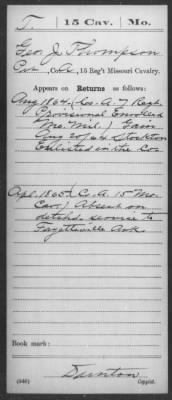 T. 15 Cav. Mo.
Geo. J. Thompson
Co. A, 15 Reg't Missouri Cavalry.
Appears on Returns as follows:
Aug 1864. (Co. A. 7 Regt.
Provisional Enrolled
Mil.) Gain
Aug 20/64 Stockton
Enlisted in the Co.
Apl. 1865. (Co. A. 15 Mo.
Cav.) Absent on
detchd. service to
Fayetteville Ark.
Book mark:
(546)
Copyist.